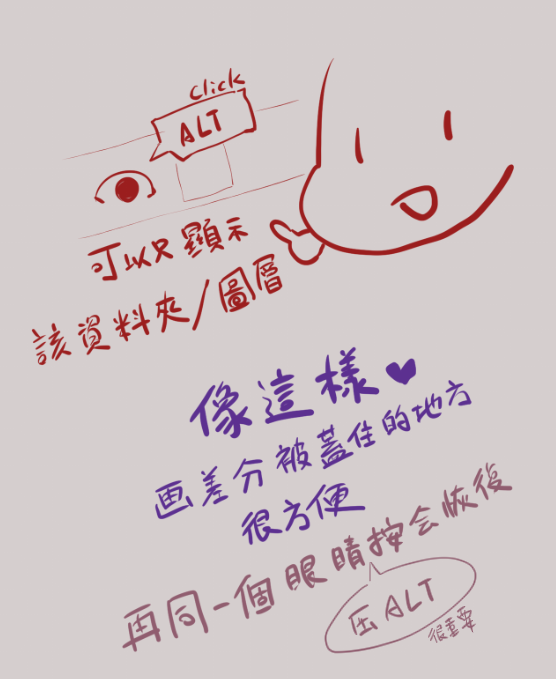 Click
ALT
可以只顯示
該資料夾/圖層
像這樣♥
画差分被蓋住的地方
很方便
再同一個眼睛按会恢復
压ALT
很重要